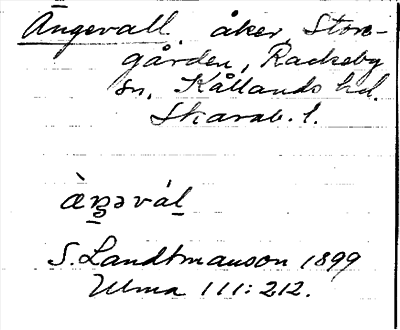 Ängevall, åker, Store-
gården, Rackeby
sn, Kållands hd.
Skarab. l.
S. Landtmanson 1899
Ulma 111:212.